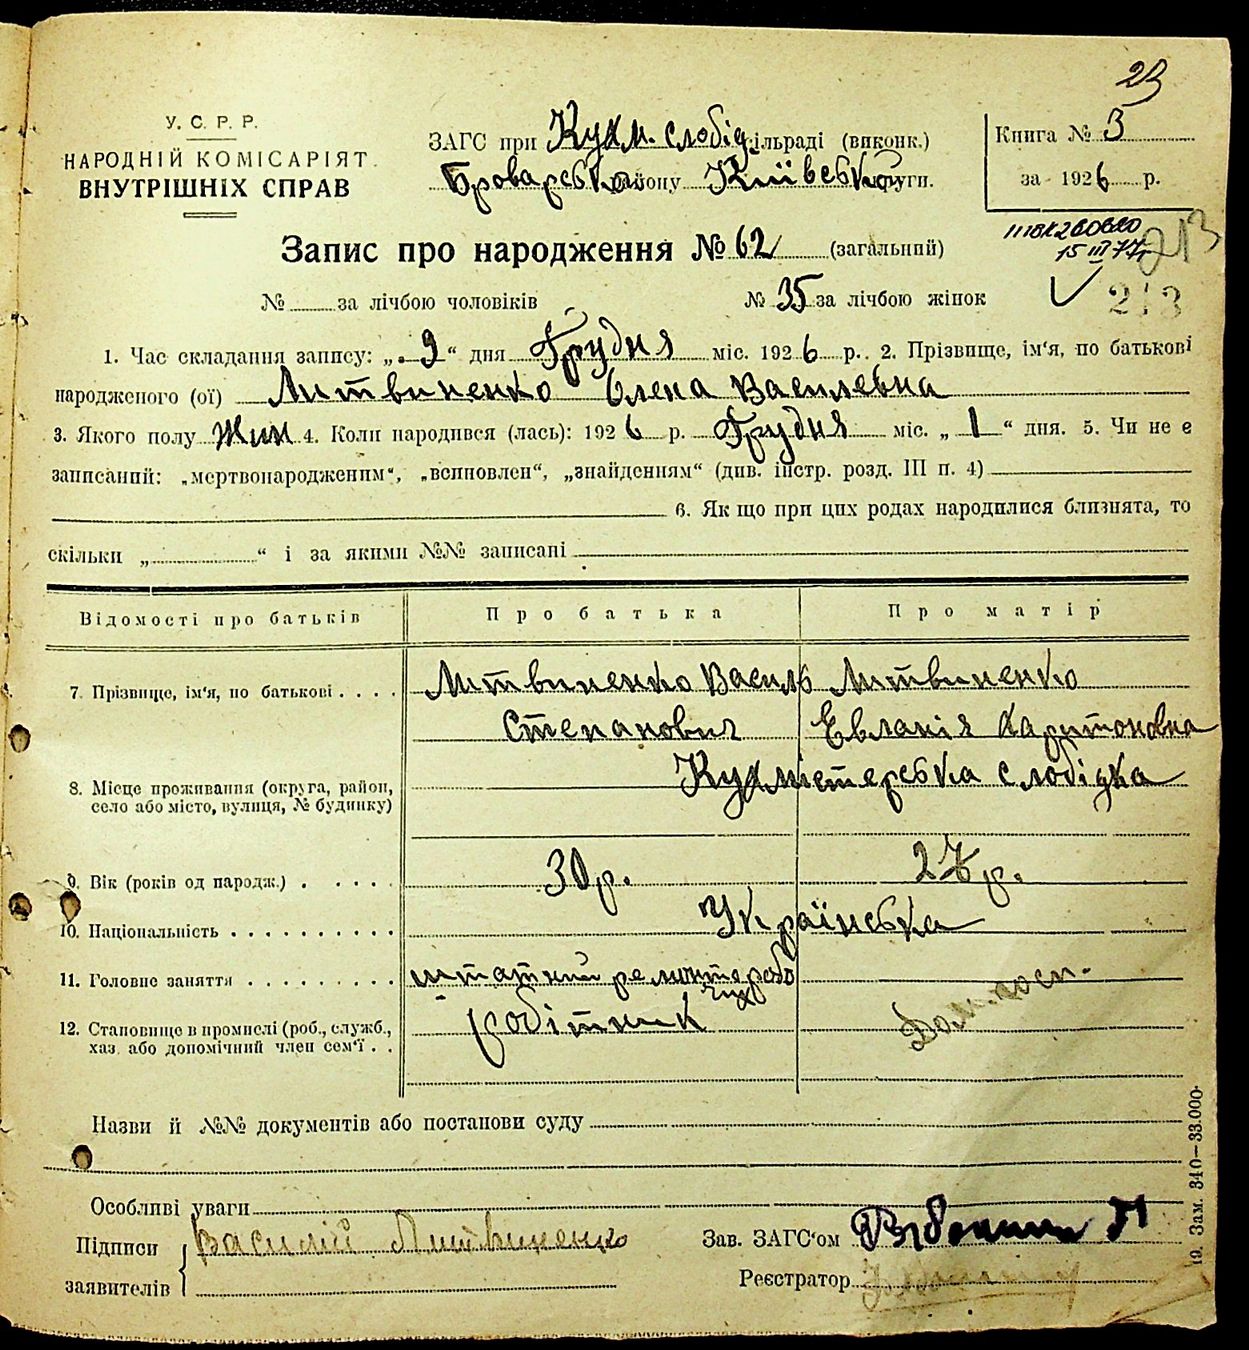 23
У. С. Р. Р.
НАРОДНІЙ КОМІСАРІЯТ
ВНУТРІШНІХ СПРАВ
ЗАГС при Кухм. слобід. ільраді (виконк.)
Броварсько району Київсько руги.
Книга № 3
за 1926 р.
Запис про народження № 62 (загальний)
15 III 77
213
№ за лічбою чоловіків № 35 за лічбою жінок
213
1. Час складання запису: „ 9 “ дня Грудня міс. 1926 р. 2. Прізвище, ім'я, по батькові
народженого (ої) Литвиненко Олена Василевна
3. Якого полу Жин 4. Коли народився (лась): 1926 р. Грудня міс. „ 1 “ дня. 5. Чи не є
записаний: „мертвонародженим“, „всиновлен“, „знайденням“ (див. інстр. розд. III п. 4)
6. Як що при цих родах народилися близнята, то
скільки „ “ і за якими №№ записані
Відомості про батьків Про батька Про матір
7. Прізвище, ім'я, по батькові . . . . Литвиненко Василь Литвиненко
Степанович Евланія Харитоновна
8. Місце проживання (округа, район, Кухмістерська слобідка
село або місто, вулиця, № будинку)
9. Вік (років од народж.) . . . . . 30 р. 27 р.
10. Національність . . . . . . . . . . Українська
11. Головне заняття . . . . . . . . . штатний ремонт робо
чих
12. Становище в промислі (роб., служб., робітник Дом. госп.
хаз. або допомічний член сем'ї . .
Назви й №№ документів або постанови суду
Особливі уваги
Підписи Василій Литвиненко Зав. ЗАГС'ом
заявителів Реєстратор
19. Зам. 340—33.000